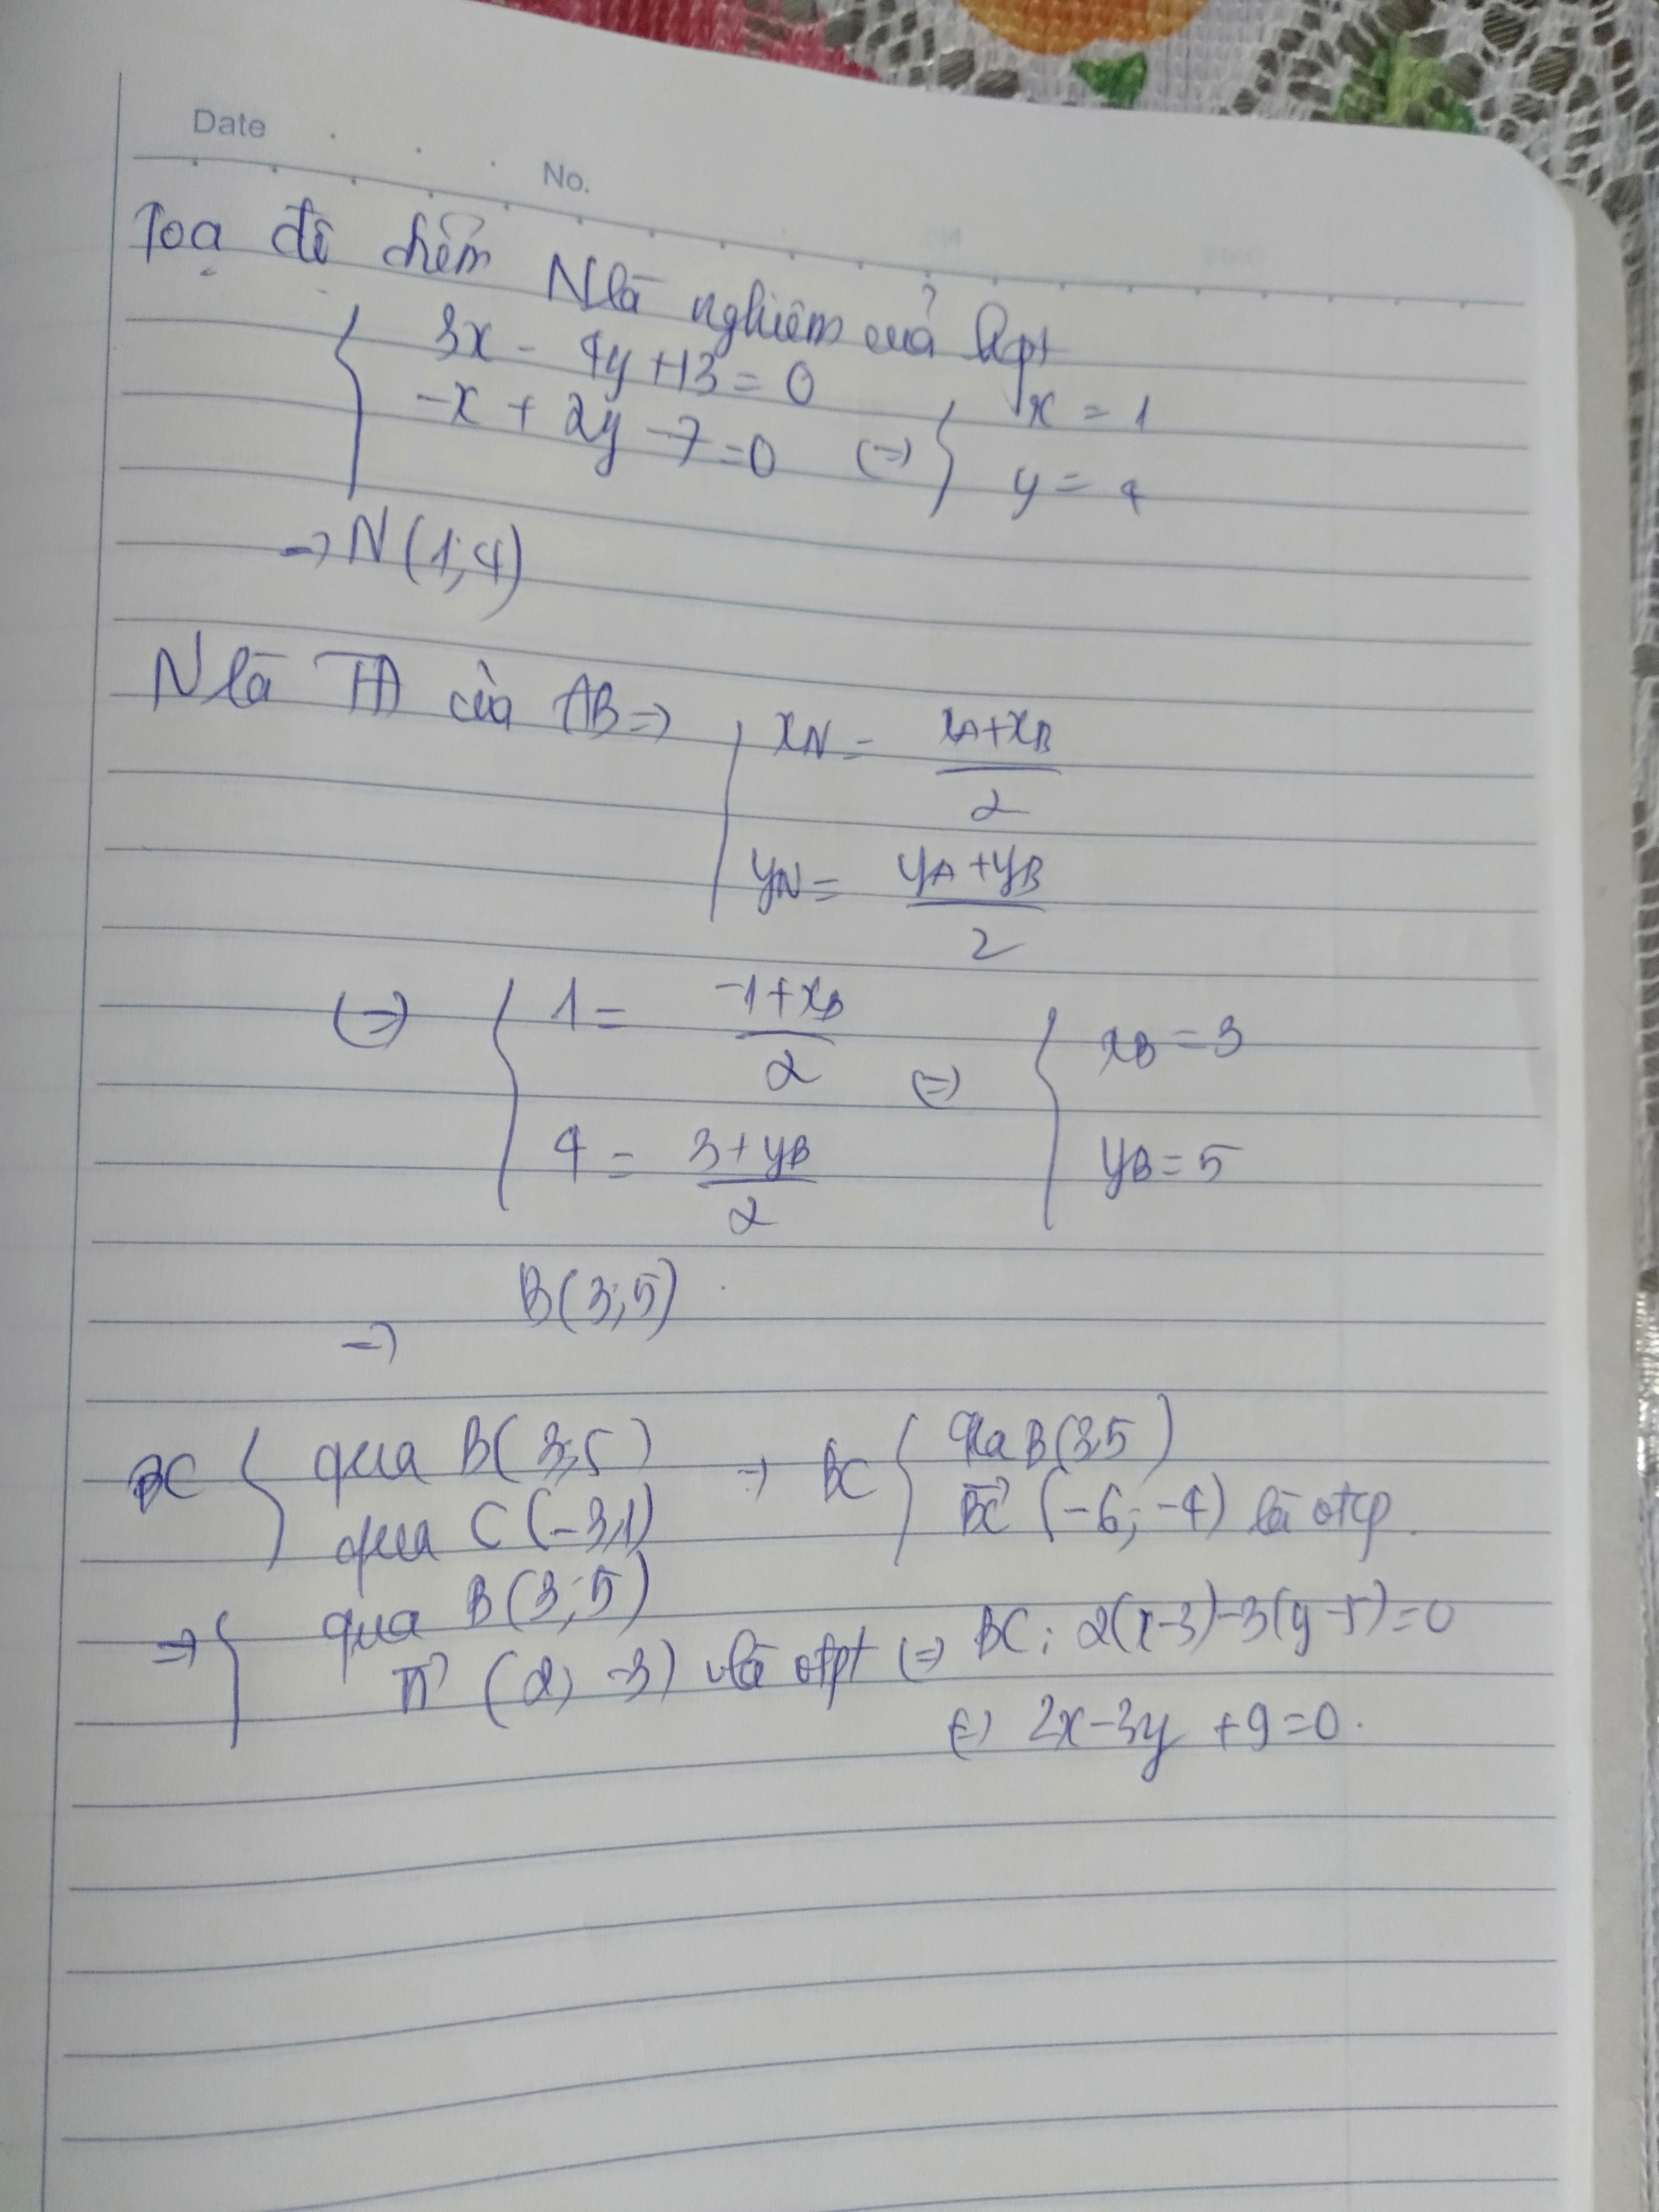 Date
No.
Toạ độ điểm N là nghiệm của hpt
3x - 4y + 13 = 0
-x + 2y - 7 = 0 (=) x = 1
y = 4
=> N(1;4)
N là TĐ của AB => xN = xA+xB
2
yN = yA+yB
2
(=) 1 = -1+xB
2 (=) xB = 3
4 = 3+yB
2 yB = 5
=> B(3;5)
BC qua B(3;5) => BC qua B(3;5)
qua C(-3;1) BC (-6; -4) là vtcp
=> qua B(3;5)
n (2; -3) là vtpt (=) BC: 2(x-3)-3(y-5)=0
(=) 2x-3y+9=0.